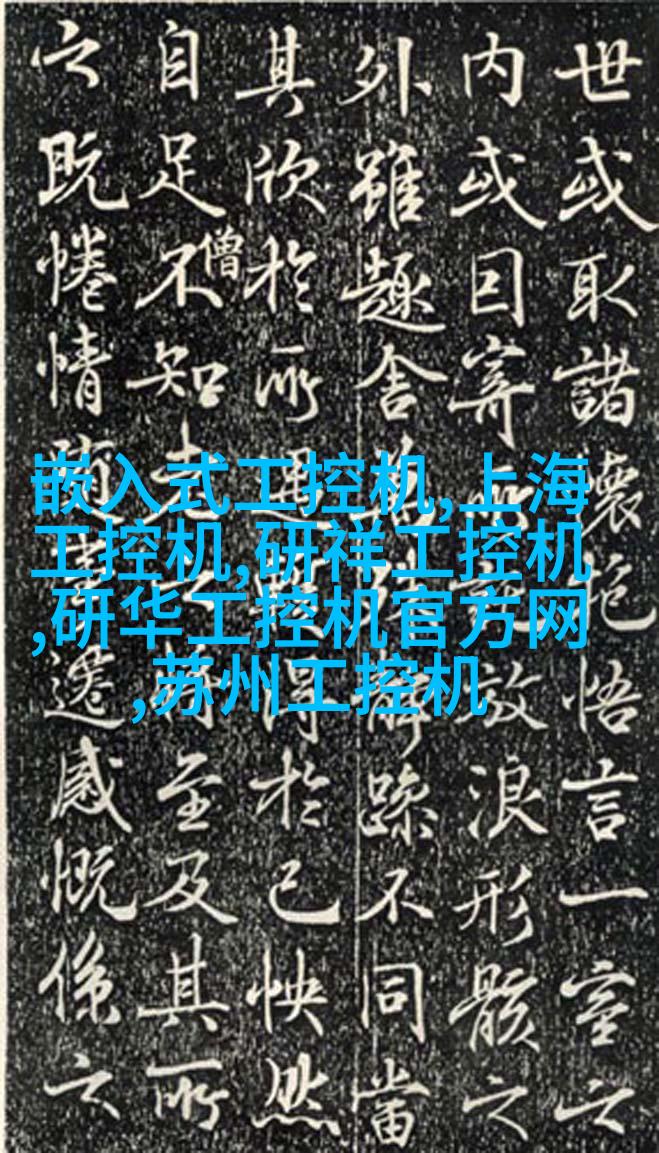 世或取諸懷抱悟言一室之
内或因寄所託放浪形骸之
外雖趣舍萬殊靜躁不同當
其欣於所遇蹔得於己怏然
僧
自足不知老之將至及其所
之既惓情隨事遷感慨係之
嵌入式工控机,上海
工控机,研祥工控机
,研华工控机官方网
,苏州工控机